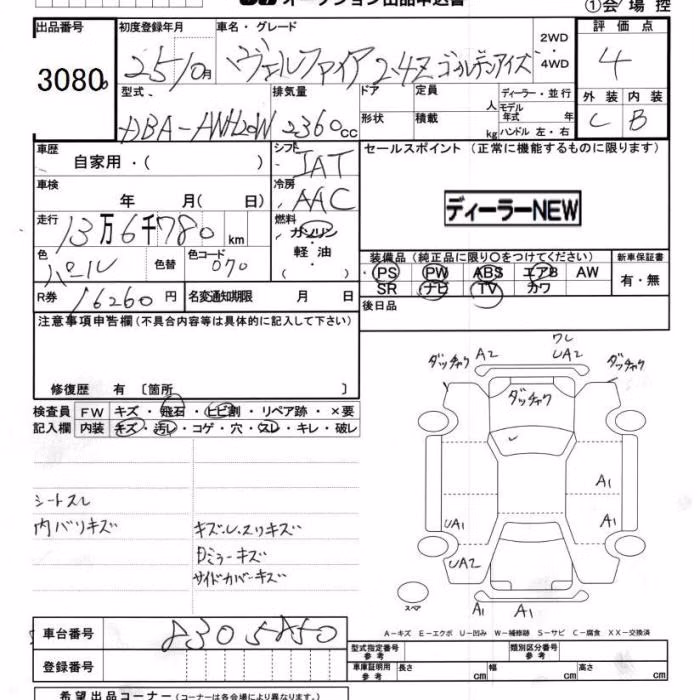 ①会場控
出品番号 初度登録年月 車名・グレード 2WD・4WD 評価点
3080 25/10月 ヴェルファイア 2.4Z ゴールデンアイズ 4
型式 排気量 ドア 定員 ディーラー・並行 外装 内装
DBA-ANH20W 2360cc 人 モデル年式 年 C B
形状 積載 kg ハンドル 左・右
車歴 シフト セールスポイント(正常に機能するものに限ります)
自家用・( ) IAT
車検 冷房
年 月( 日) AAC ディーラーNEW
走行 燃料
13万6千780km ガソリン・軽油
色 色替 色コード 装備品(純正品に限り○をつけてください) 新車保証書
パール 070 PS PW ABS エアB AW 有・無
R券 16260円 名変通知期限 月 日 SR ナビ TV カワ
後日品
注意事項申告欄(不具合内容等は具体的に記入して下さい)
修復歴 有 〔箇所 〕
検査員 FW キズ・飛石・ヒビ割・リペア跡・×要
記入欄 内装 キズ・汚レ・コゲ・穴・スレ・キレ・破レ
ダッチャク A2 ワレ UA2 ダッチャク
ダッチャク
A1
UA1 A1
UA2
A1 A1
スペア
シートスレ
内バリキズ キズ.U.スリキズ
Dミラーキズ
サイドカバーキズ
A-キズ E-エクボ U-凹み W-補修跡 S-サビ C-腐食 XX-交換済
車台番号 8305850
登録番号
型式指定番号 参考 類別区分番号 参考
車庫証明用 参考 長さ cm 幅 cm 高さ cm
希望出品コーナー(コーナーは各会場により異なります。)